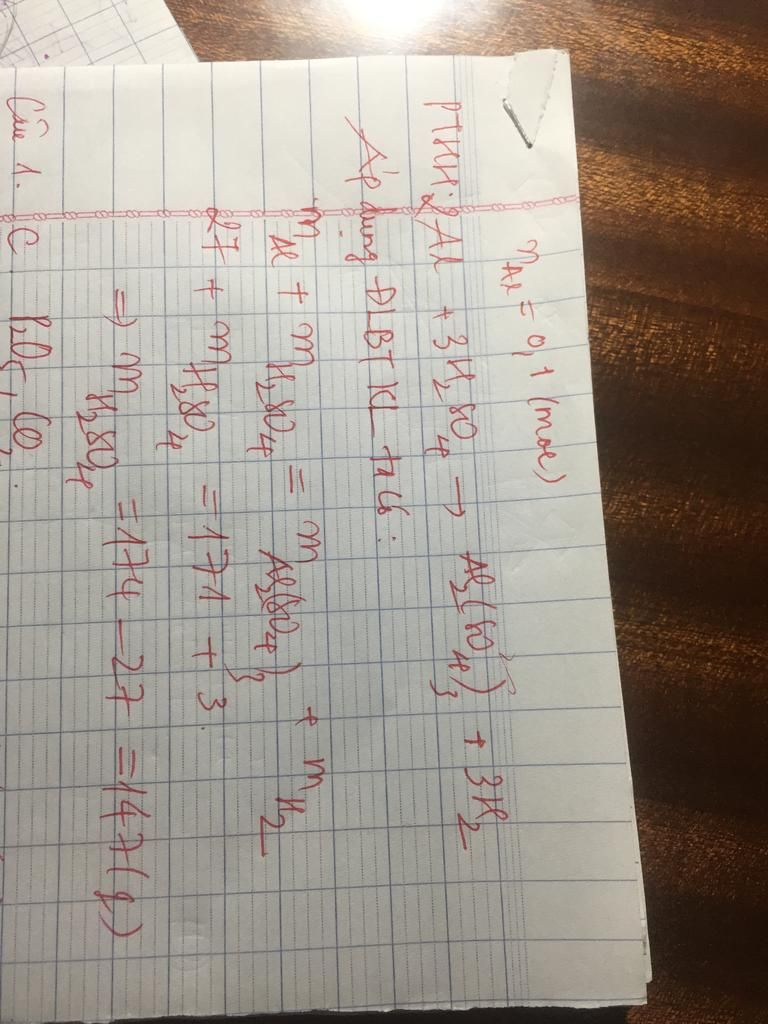 n Al = 0,1 (mol)
PTHH: 2Al + 3H2SO4 → Al2(SO4)3 + 3H2
Áp dụng ĐLBTKL ta có:
m Al + m H2SO4 = m Al2(SO4)3 + m H2
27 + m H2SO4 = 171 + 3
=> m H2SO4 = 174 - 27 = 147 (g)
Câu 1. C P2O5, CO2.